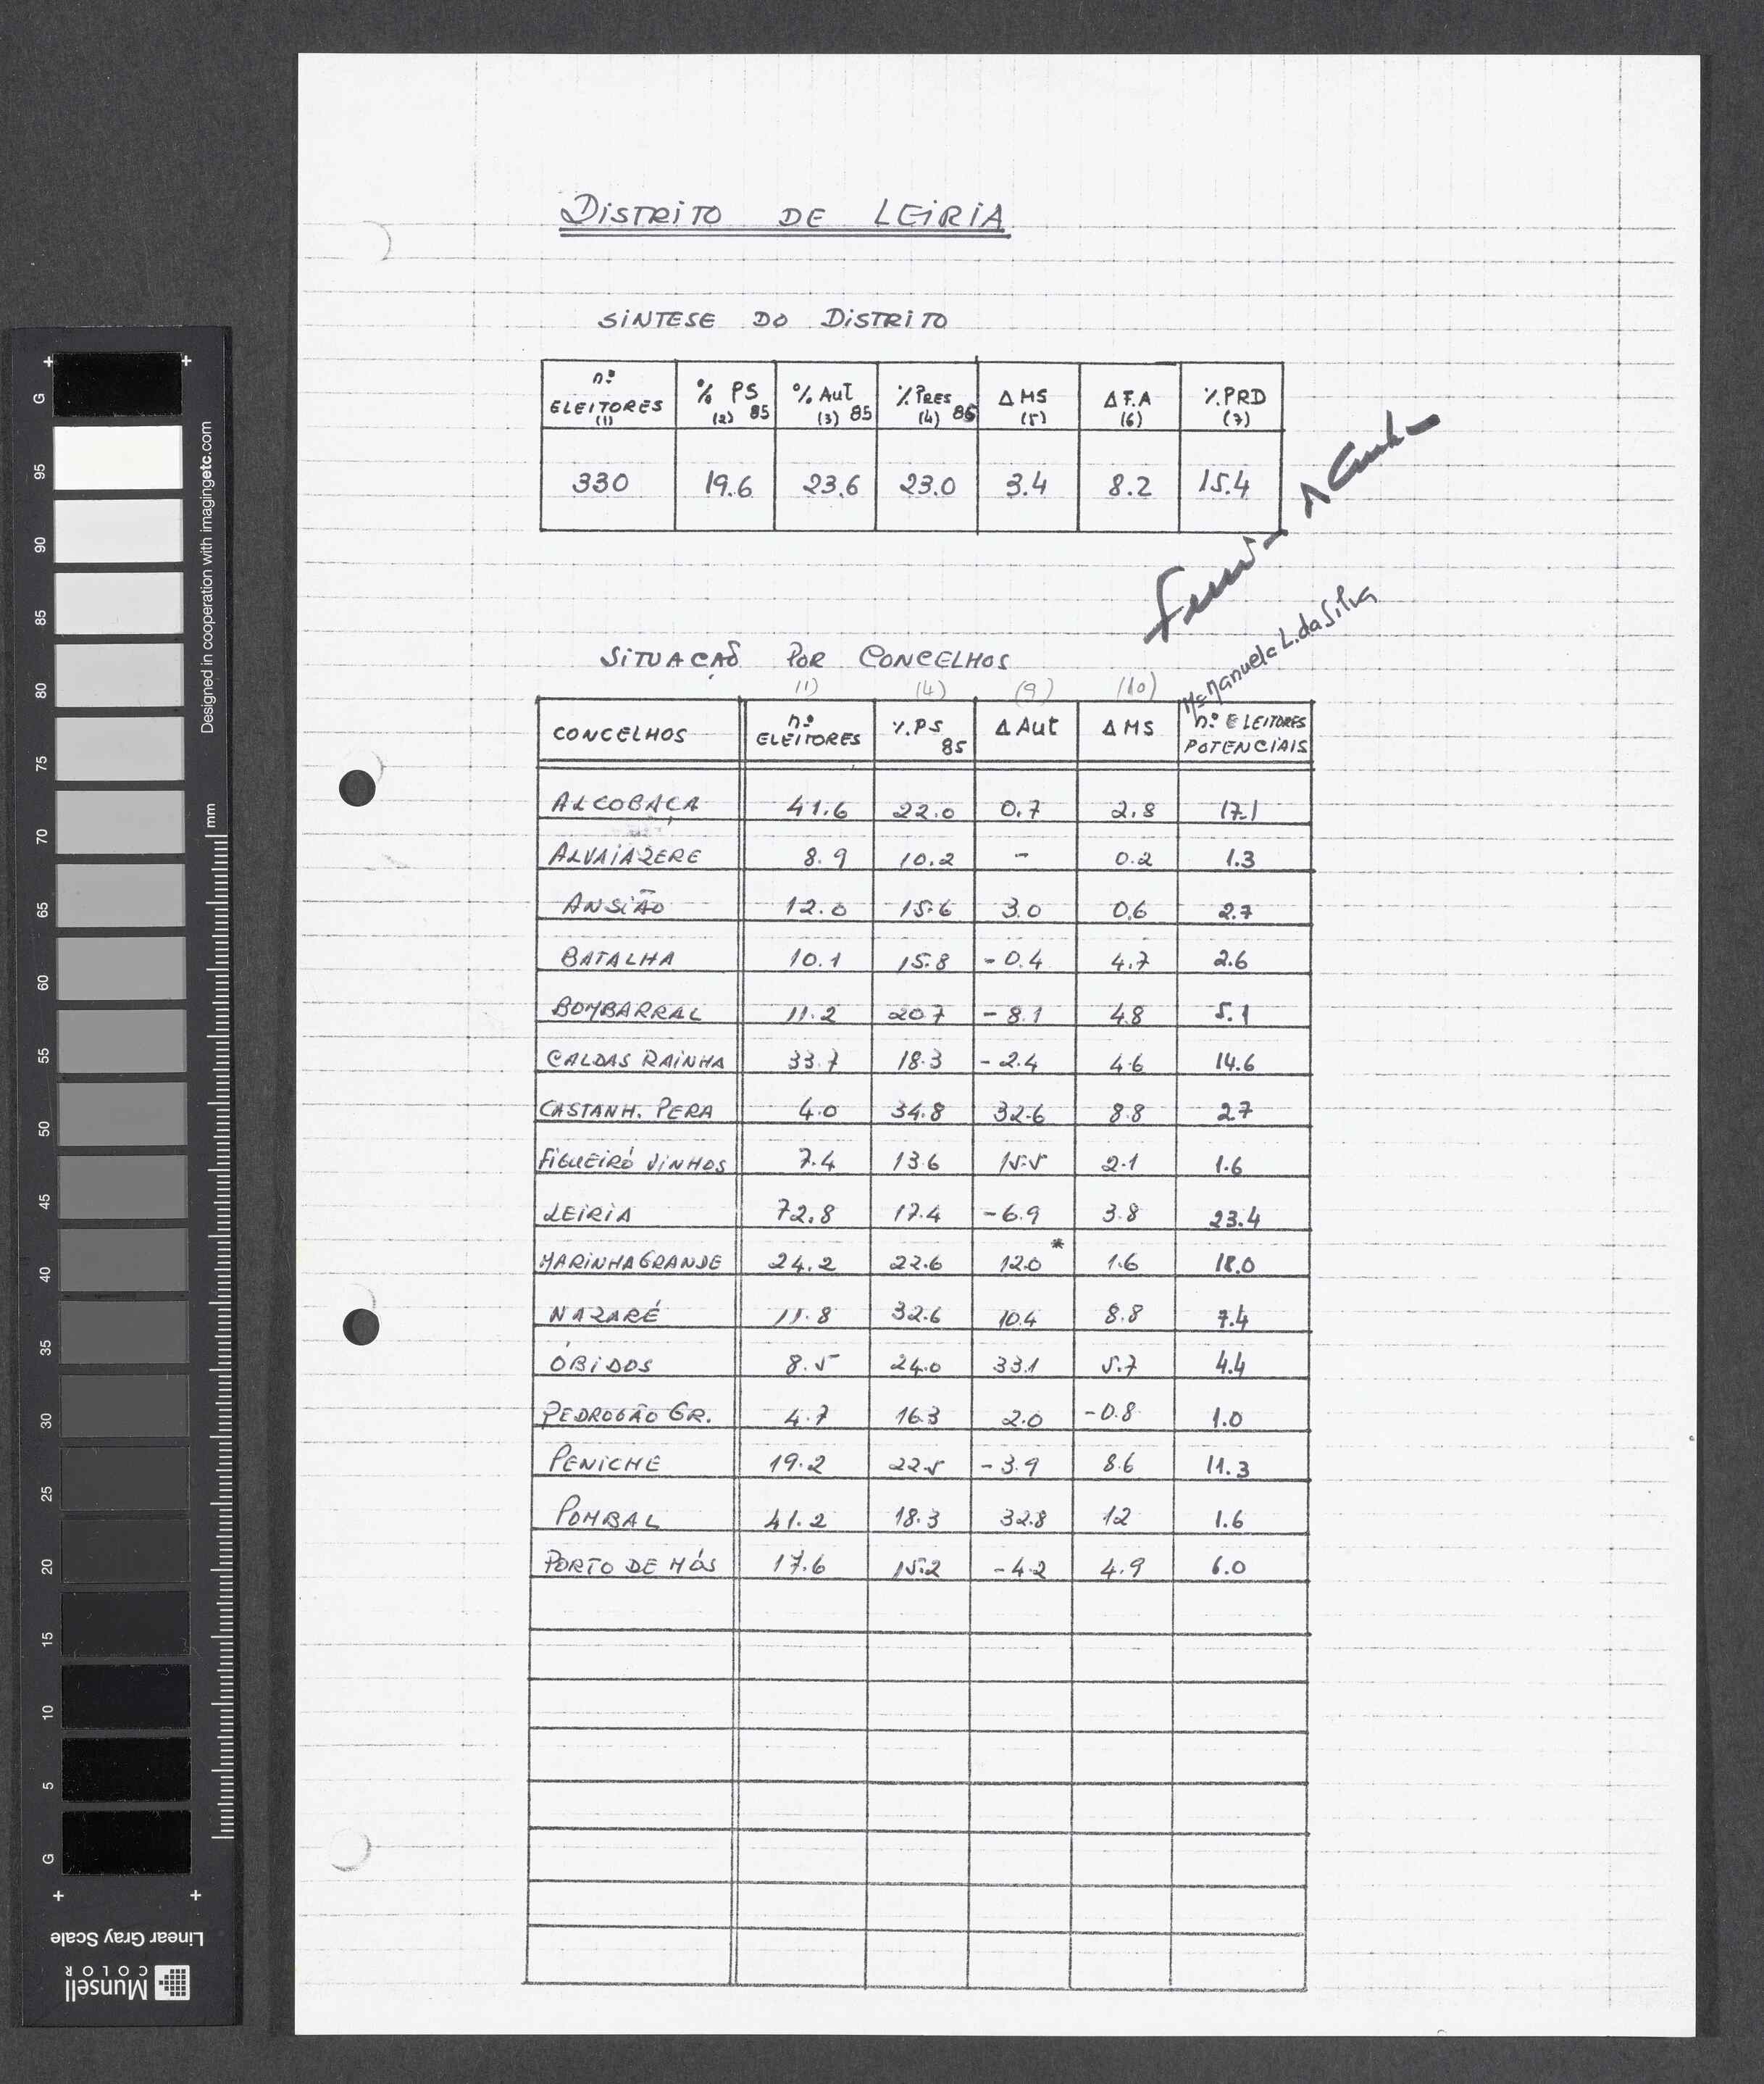 DISTRITO DE LEIRIA
SINTESE DO DISTRITO
nº ELEITORES (1) % PS (2) 85 % AUT (3) 85 % PRES (4) 86 Δ MS (5) Δ F.A (6) % PRD (7)
330 19.6 23.6 23.0 3.4 8.2 15.4
Mª Manuela L. da Silva
SITUAÇÃO POR CONCELHOS
(1) (4) (9) (10)
CONCELHOS nº ELEITORES % PS 85 Δ AUT Δ MS nº ELEITORES POTENCIAIS
ALCOBAÇA 41.6 22.0 0.7 2.8 17.1
ALVAIÁZERE 8.9 10.2 - 0.2 1.3
ANSIÃO 12.0 15.6 3.0 0.6 2.7
BATALHA 10.1 15.8 -0.4 4.7 2.6
BOMBARRAL 11.2 20.7 -8.1 4.8 5.1
CALDAS RAINHA 33.7 18.3 -2.4 4.6 14.6
CASTANH. PERA 4.0 34.8 32.6 8.8 2.7
FIGUEIRÓ VINHOS 7.4 13.6 15.5 2.1 1.6
LEIRIA 72.8 17.4 -6.9 3.8 23.4
MARINHA GRANDE 24.2 22.6 12.0 * 1.6 18.0
NAZARÉ 11.8 32.6 10.4 8.8 7.4
ÓBIDOS 8.5 24.0 33.1 5.7 4.4
PEDROGÃO GR. 4.7 16.3 2.0 -0.8 1.0
PENICHE 19.2 22.5 -3.9 8.6 11.3
POMBAL 41.2 18.3 32.8 12 1.6
PORTO DE MÓS 17.6 15.2 -4.2 4.9 6.0
G 95 90 85 80 75 70 65 60 55 50 45 40 35 30 25 20 15 10 5 G
Designed in cooperation with imagingetc.com
mm
Linear Gray Scale
Munsell
COLOR